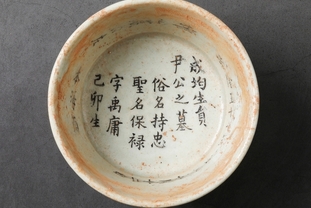 成均生員
尹公之墓
俗名持忠
聖名保禄
字禹庸
己卯生